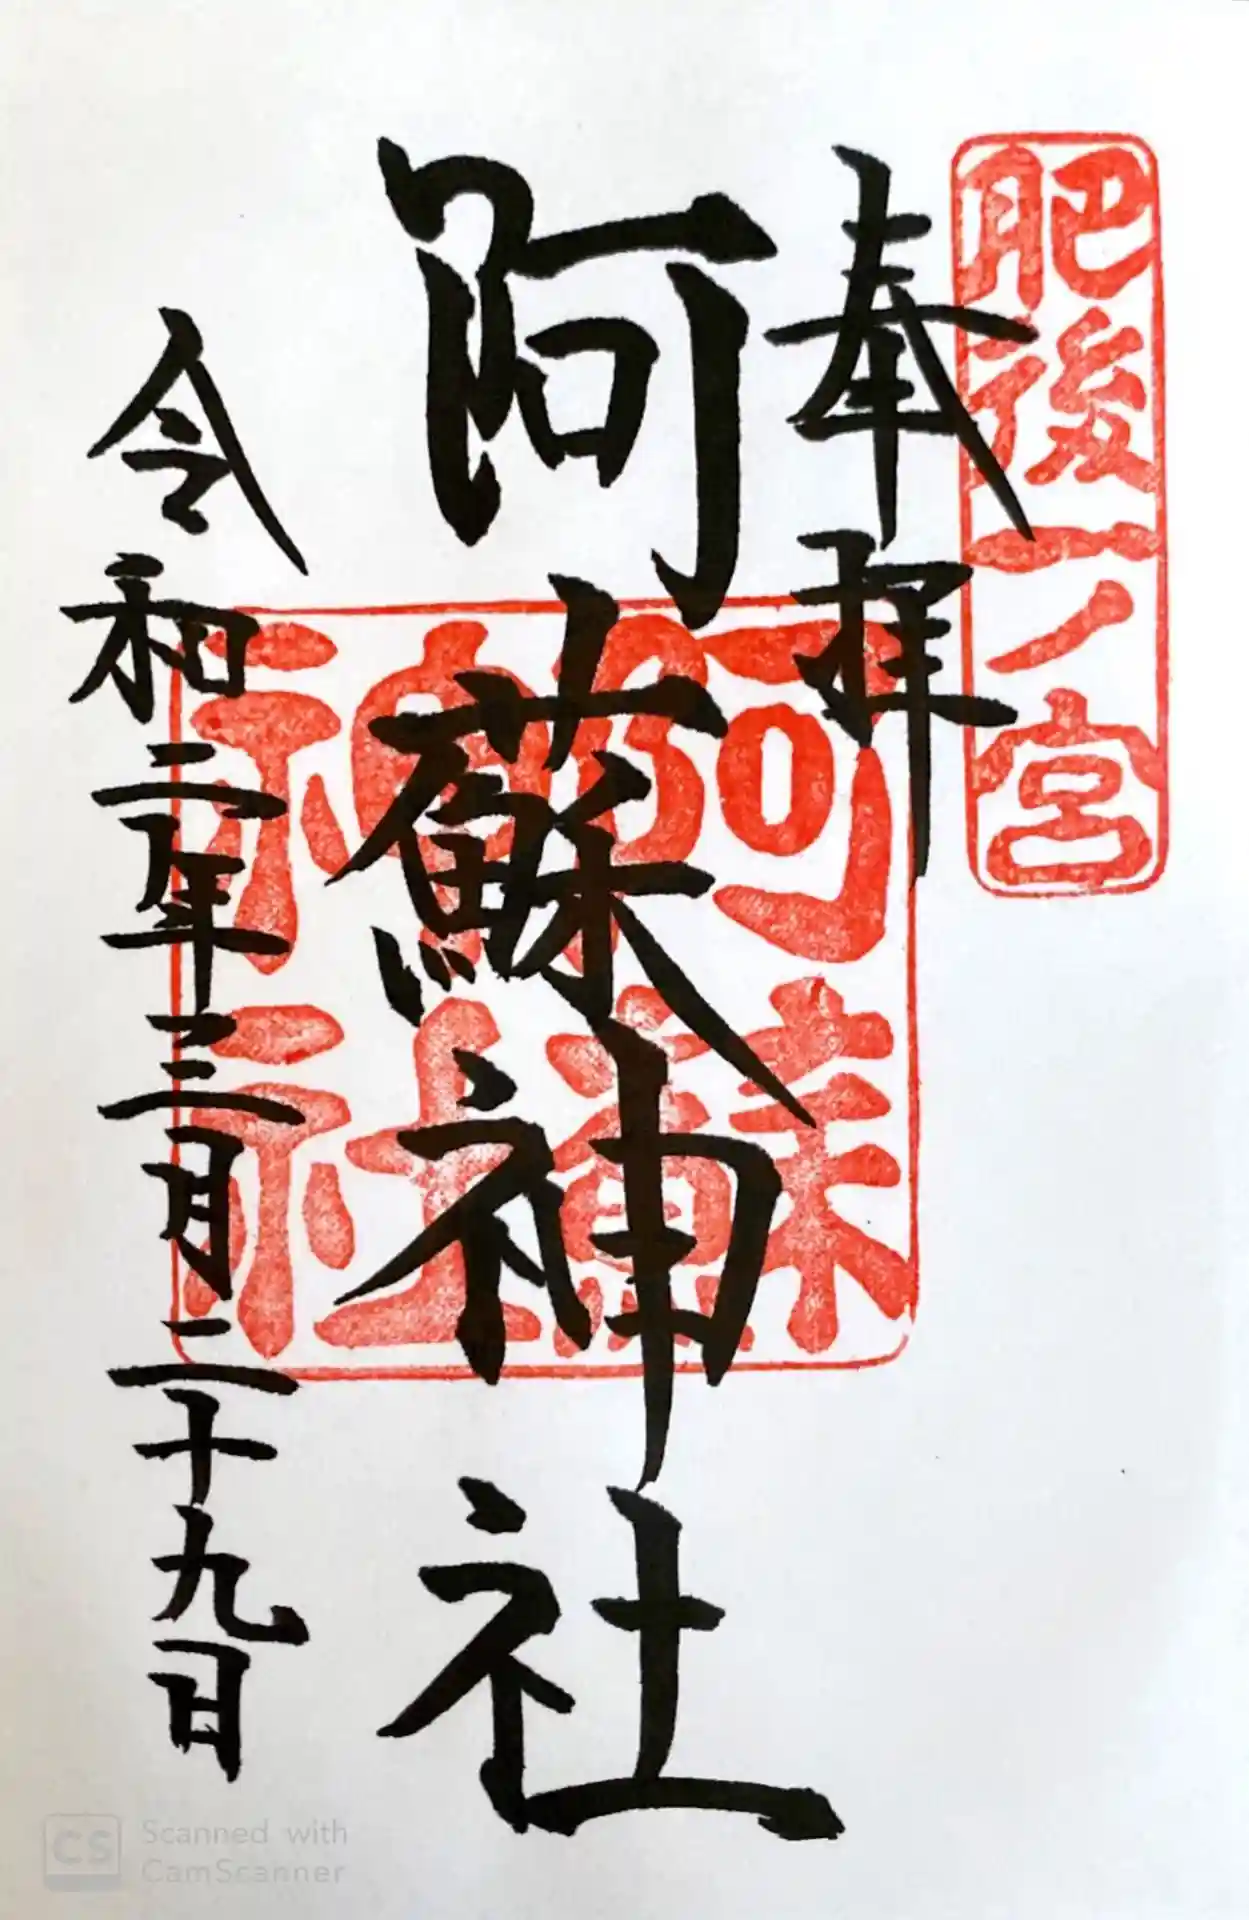 肥後一ノ宮
奉拝
阿蘇神社
阿蘇神社
令和二年三月二十九日
CS Scanned with
CamScanner